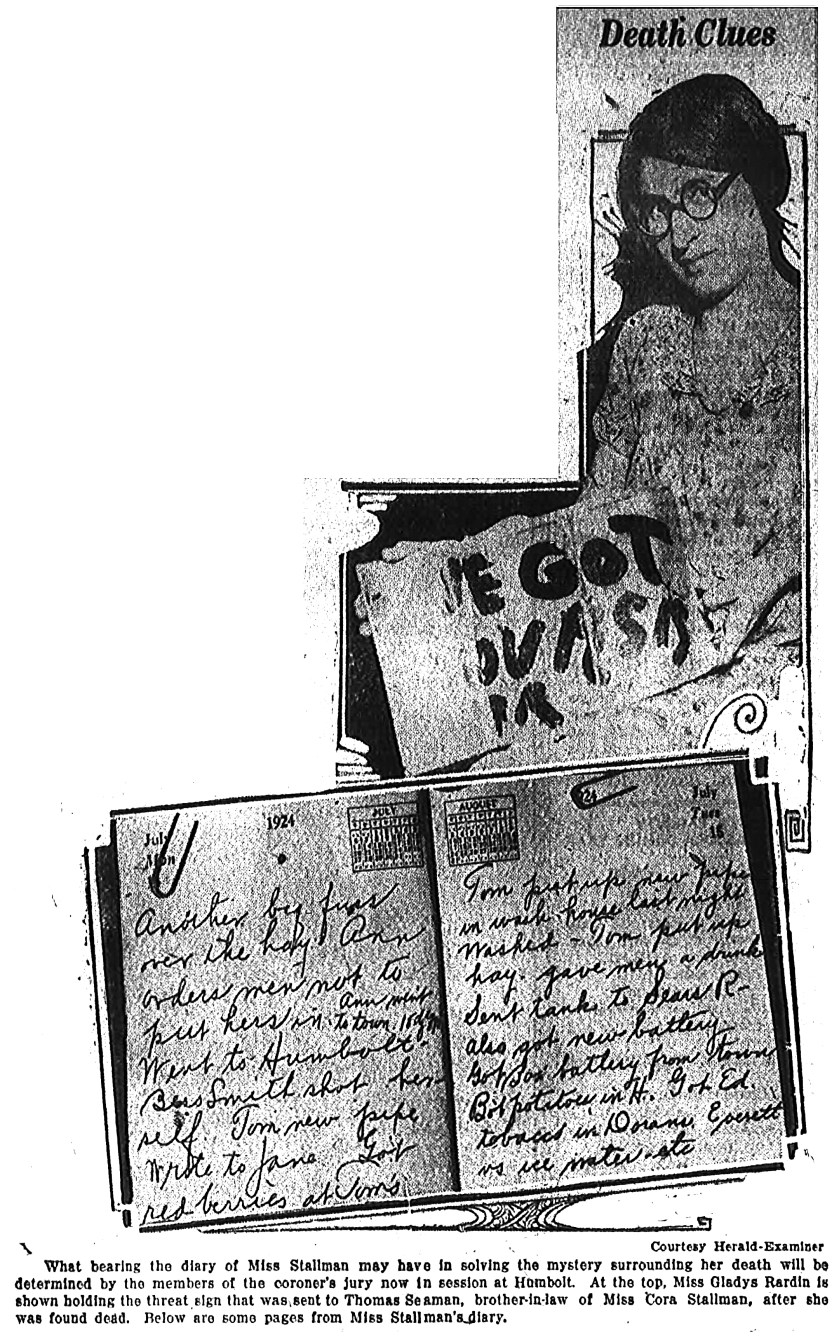 Death Clues
E GOT
July
Mon
1924
JULY
Another big fuss
over the hay. Ann
orders men not to
put hers in. Ann went
to town.
Went to Humbolt.
Bess Smith shot her
self. Tom new pipe
Wrote to Jane. Got
red berries at Toms
AUGUST
24
July
Tues
15
Tom put up new pipe
in wash house last night
Washed - Tom put up
hay. gave men a drink
Sent tank to Sears R-
also got new battery
Got battery from town
Bot potatoes in H. Got Ed.
tobacco in Dorans. Everett
vs ice water - etc
Courtesy Herald-Examiner
What bearing the diary of Miss Stallman may have in solving the mystery surrounding her death will be
determined by the members of the coroner's jury now in session at Humbolt. At the top, Miss Gladys Rardin is
shown holding the threat sign that was sent to Thomas Seaman, brother-in-law of Miss Cora Stallman, after she
was found dead. Below are some pages from Miss Stallman's diary.